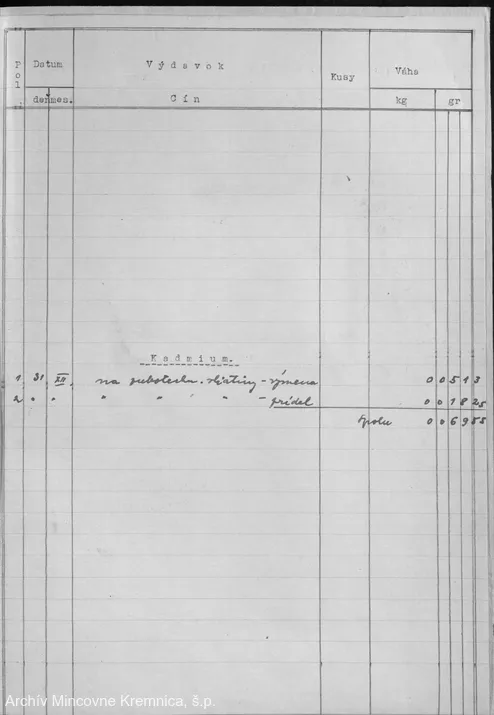 Pol. Datum Výdavok Kusy Váha
deň mes. Cín kg gr
Kadmium.
1 31 XII na zubotechn. zliatiny - výmena 0 0 5 1 3
2 " " " " " " - prídel 0 0 1 8 25
Spolu 0 0 6 9 55
Archív Mincovne Kremnica, š.p.